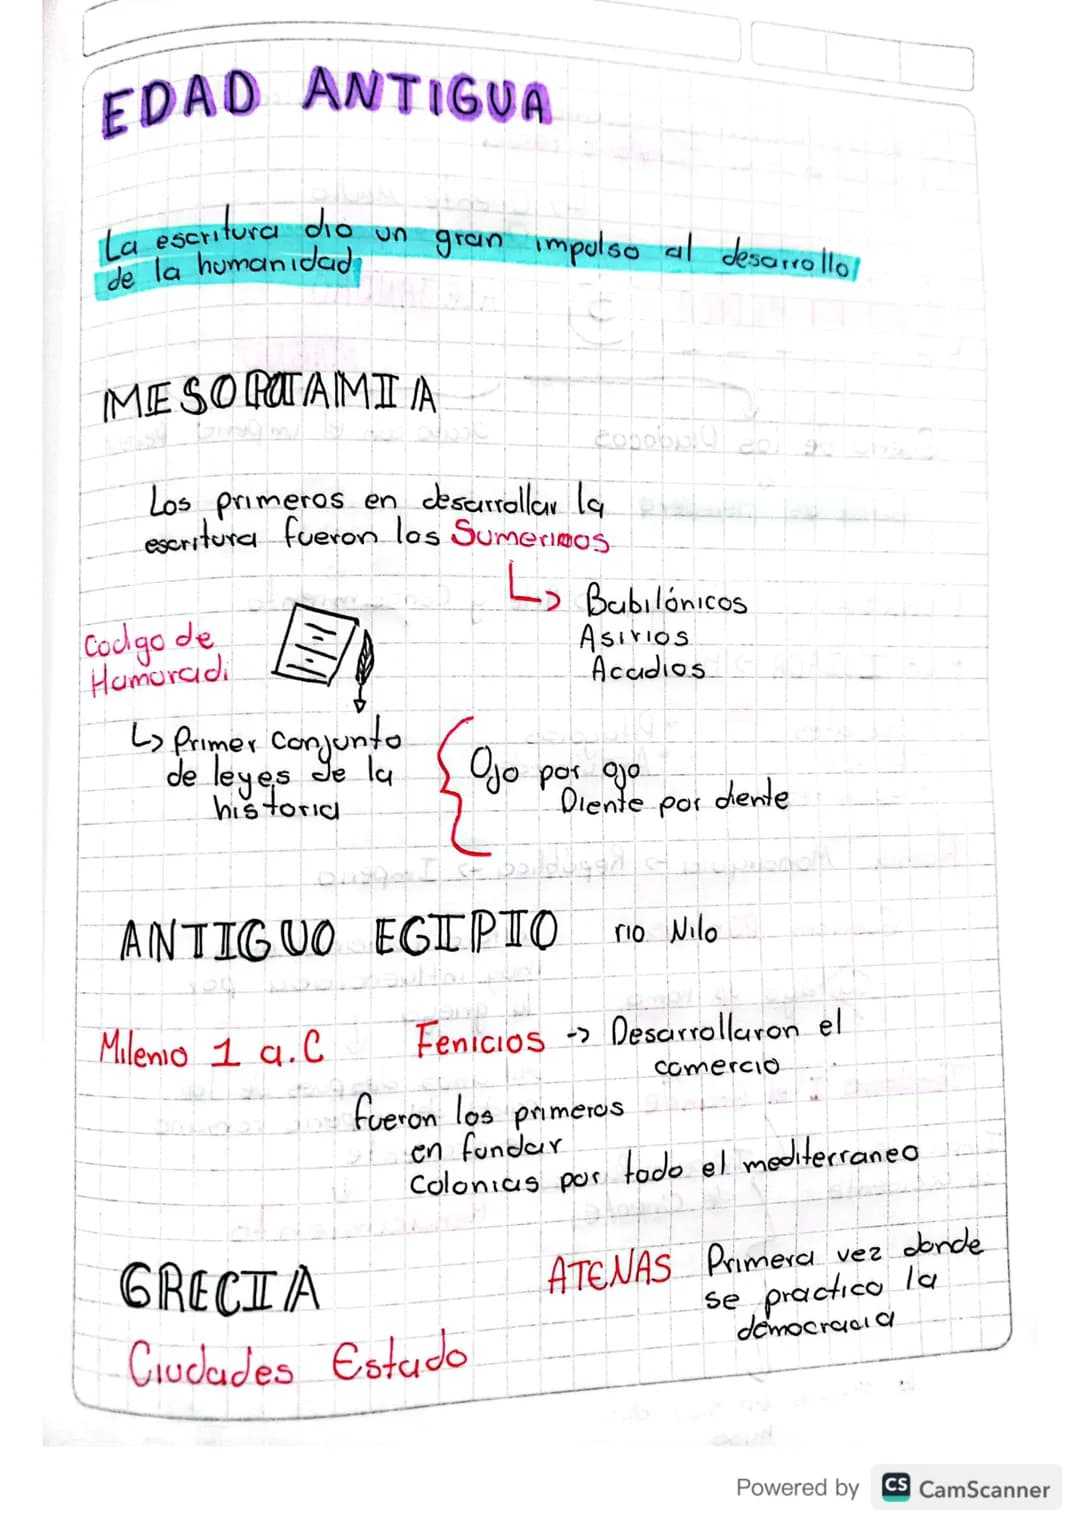 EDAD ANTIGUA
La escritura dio un gran impulso al desarrollo
de la humanidad
MESOPOTAMIA
Los primeros en desarrollar la
escritura fueron los Sumerios
↳ Babilónicos
Asirios
Acadios
Codigo de
Hamuradi
↳ Primer conjunto
de leyes de la
historia
Ojo por ojo
Diente por diente
ANTIGUO EGIPTO rio Nilo
Milenio 1 a.C Fenicios -> Desarrollaron el
comercio
fueron los primeros
en fundar
Colonias por todo el mediterraneo
GRECIA ATENAS Primera vez donde
se practico la
democracia
Ciudades Estado
Powered by CS CamScanner